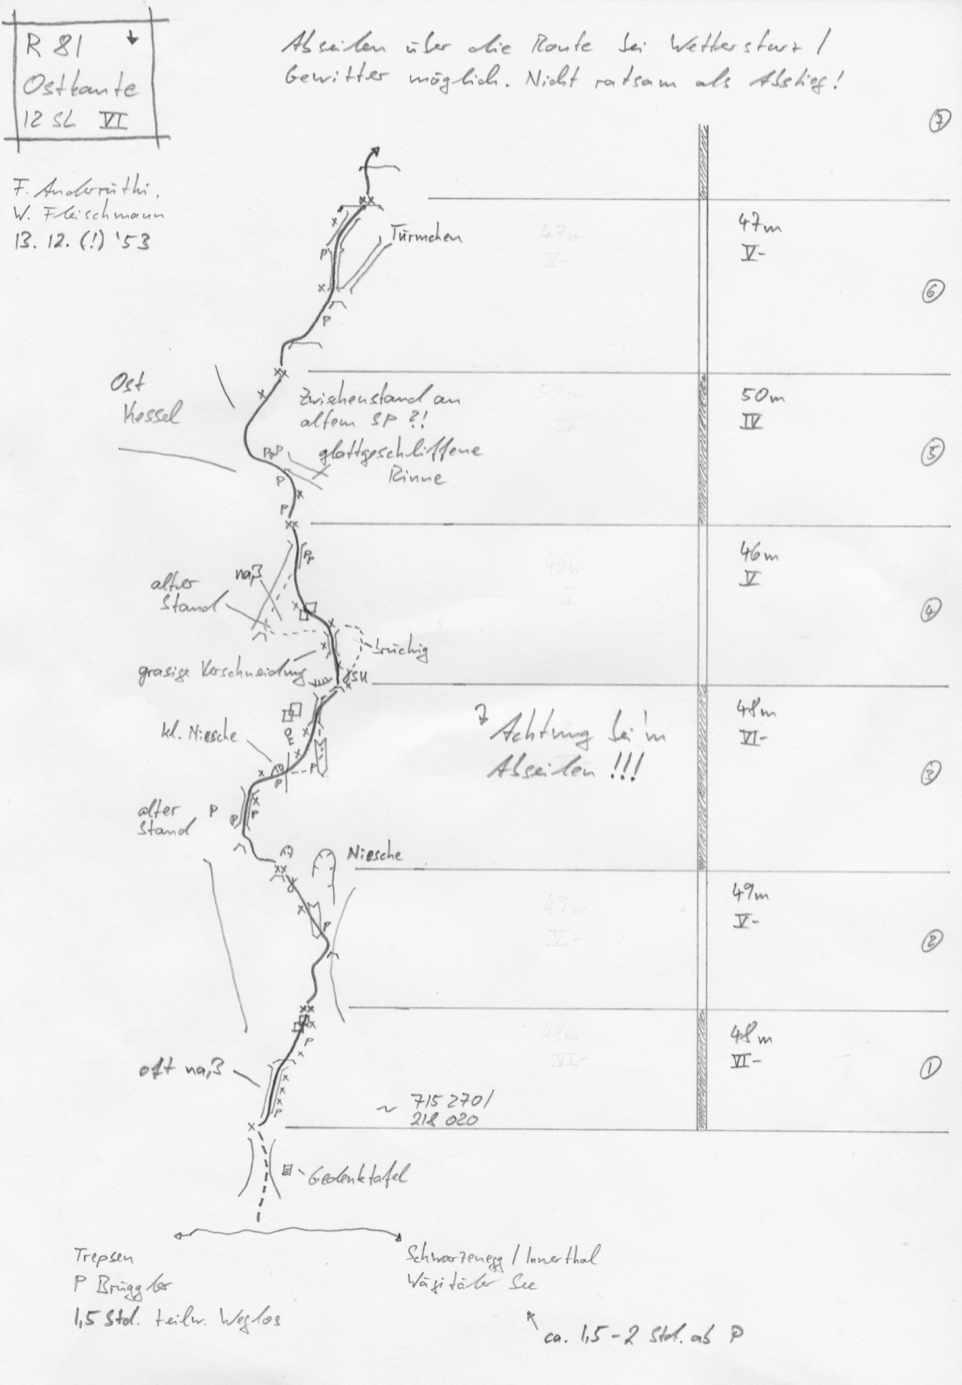 R 81
Ostkante
12 SL VI
Abseilen über die Route bei Wettersturz /
Gewitter möglich. Nicht ratsam als Abstieg!
F. Anderrüthi,
W. Fleischmann
13. 12. (!) '53
7
Türmchen
47m
V-
47m
V-
P
6
P
Ost
Kessel
Zwischenstand an
altem SP ?!
50m
IV
50m
IV
glattgeschliffene
Rinne
PPP
P
5
P
46m
V
46m
V
PP
naß
alter
Stand
4
brüchig
grasige Verschneidung
SU
kl. Niesche
Achtung beim
Abseilen !!!
48m
VI-
3
P
P
alter
Stand
P
P
P
Niesche
49m
V-
49m
V-
P
2
48m
VI-
48m
VI-
P
oft naß
1
P
~ 715 270/
218 020
Gedenktafel
Trepsen
P Brüggler
1,5 Std. teilw. Weglos
Schwarzenegg / Innerthal
Wägitaler See
ca. 1,5 - 2 Std. ab P